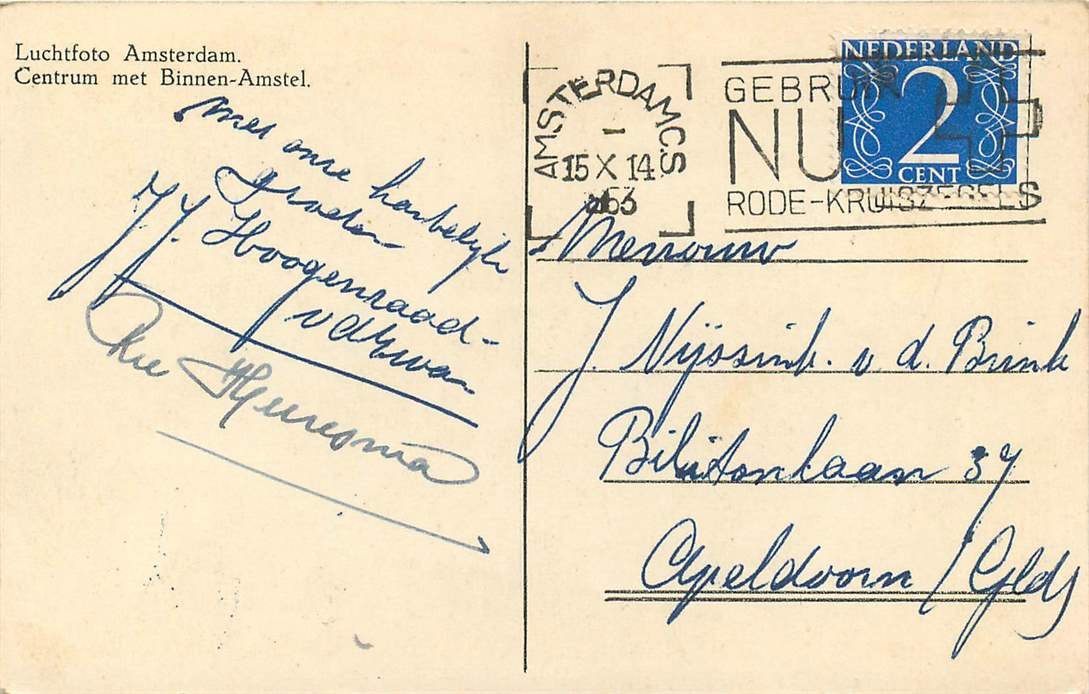 Luchtfoto Amsterdam.
Centrum met Binnen-Amstel.
Met onze hartelijke
groeten
J. J. Hoogenraad-
v d
AMSTERDAM CS
1
15 X 14
53
GEBRUI
NU
RODE-KRUISZEGELS
NEDERLAND
2
CENT
Mevrouw
J. Nijssink. v. d. Brink
Billitonlaan 37
Apeldoorn / Gld